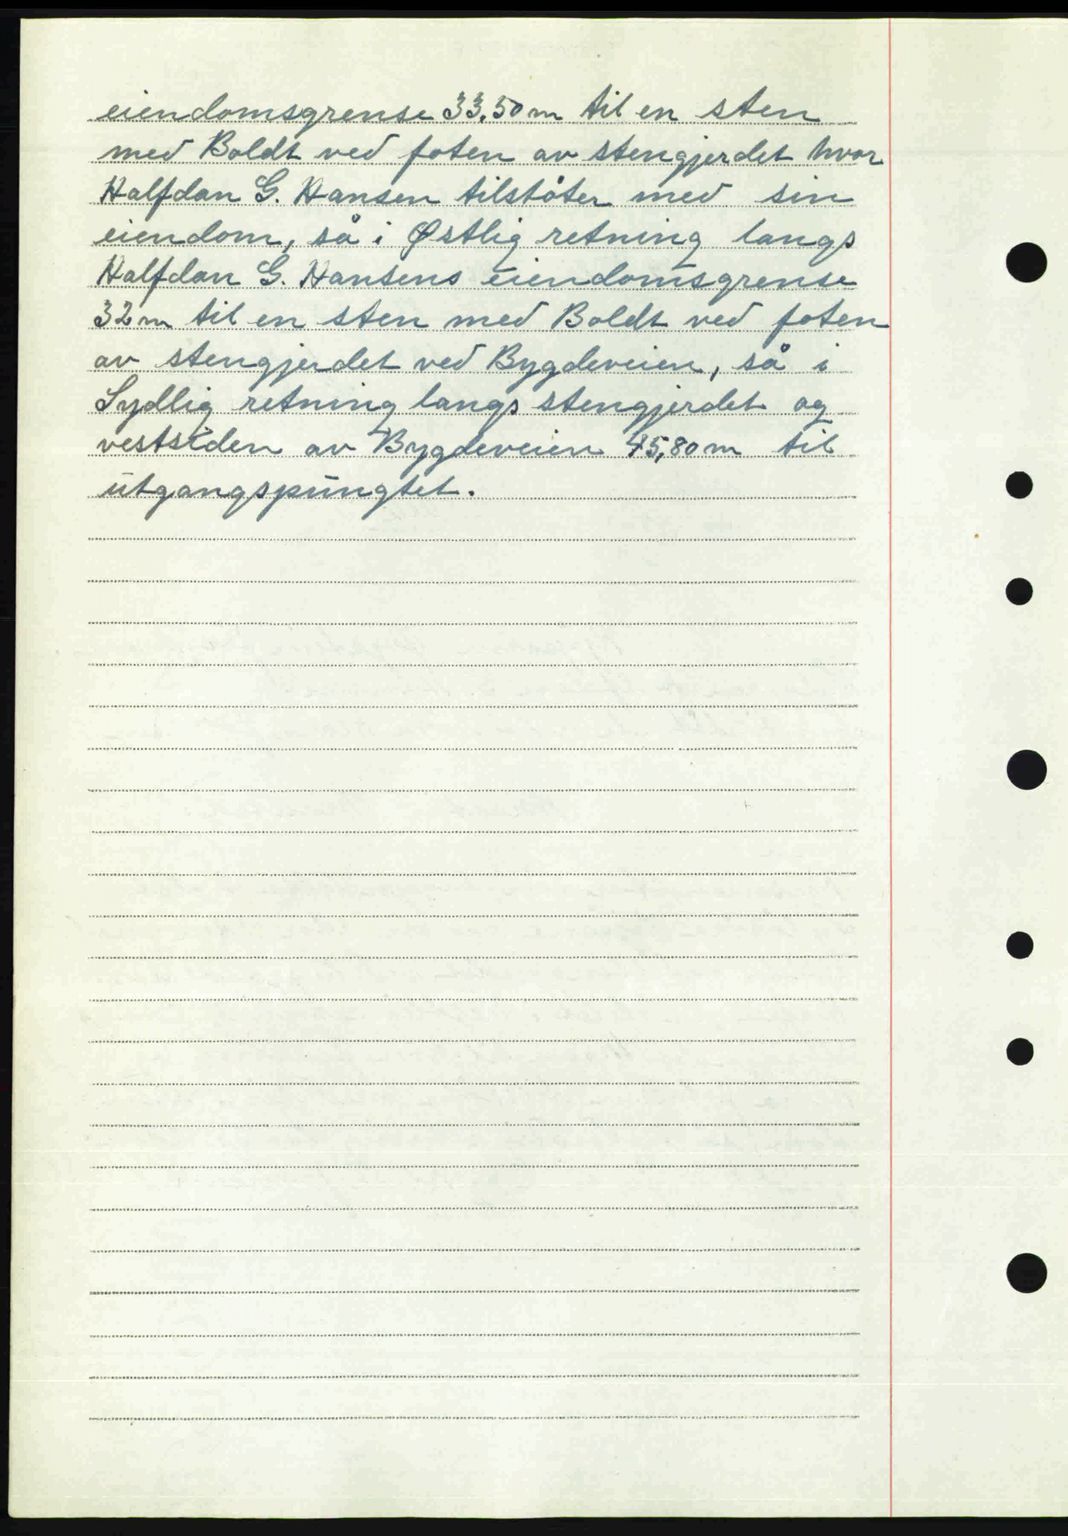 eiendomsgrense 33,50 m til en sten
med Boldt ved foten av stengjerdet hvor
Halfdan G. Hansen tilstöter med sin
eiendom, så i Østlig retning langs
Halfdan G. Hansens eiendomsgrense
32 m til en sten med Boldt ved foten
av stengjerdet ved Bygdeveien, så i
Sydlig retning langs stengjerdet og
vestsiden av Bygdeveien 45,80 m til
utgangspungtet.